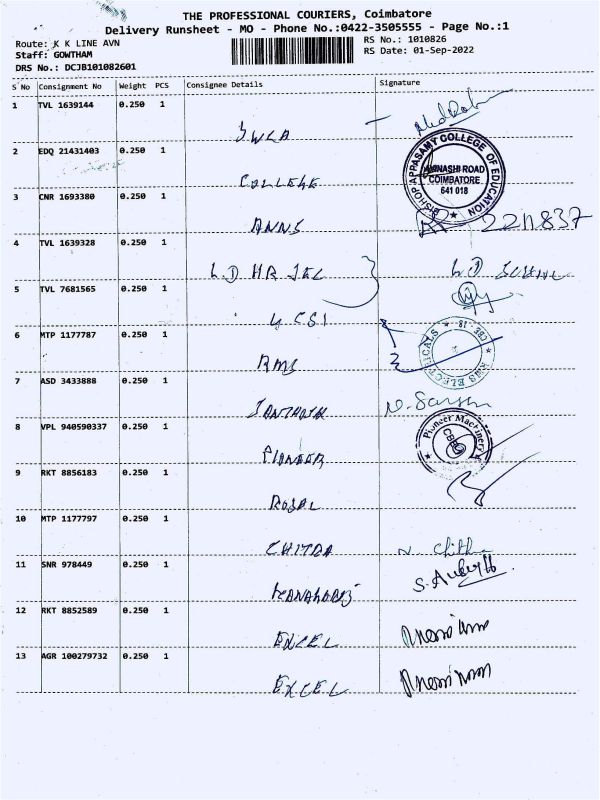 THE PROFESSIONAL COURIERS, Coimbatore
Delivery Runsheet - MO - Phone No.:0422-3505555 - Page No.:1
Route: K K LINE AVN
RS No.: 1010826
Staff: GOWTHAM
RS Date: 01-Sep-2022
DRS No.: DCJB101082601
S No Consignment No Weight PCS Consignee Details Signature
1 TVL 1639144 0.250 1
2 EDQ 21431403 0.250 1
COLLEGE
BISHOP APPASAMY COLLEGE OF EDUCATION
AVINASHI ROAD
COIMBATORE
641 018
3 CNR 1693380 0.250 1
ANNS
2211837
4 TVL 1639328 0.250 1
5 TVL 7681565 0.250 1
CSI
6 MTP 1177787 0.250 1
RMS
RMS ELECTRICALS * CBE - 18 *
7 ASD 3433888 0.250 1
8 VPL 940590337 0.250 1
PIONEER
Pioneer Machinery
9 RKT 8856183 0.250 1
ROSAL
10 MTP 1177797 0.250 1
CHITRA
11 SNR 978449 0.250 1
12 RKT 8852589 0.250 1
EXCEL
13 AGR 100279732 0.250 1
EXCEL